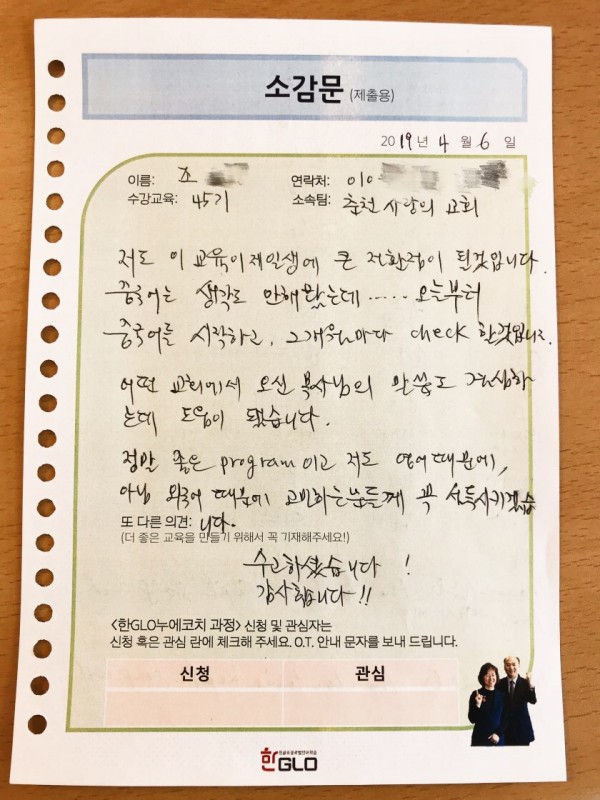 소감문 (제출용)
2019년 4월 6일
이름: 조
연락처: 010
수강교육: 45기
소속팀: 춘천 사랑의 교회
저도 이 교육이 제 일생에 큰 전환점이 될것입니다.
중국어는 생각도 안해봤는데...... 오늘부터
중국어를 시작하고, 2개월마다 check 할것입니다.
어떤 교회에서 오신 목사님의 말씀도 결심하
는데 도움이 됐습니다.
정말 좋은 program이고 저도 영어때문에,
아님 외국어 때문에 고민하는분들께 꼭 설득시키겠습
또 다른 의견: 니다.
(더 좋은 교육을 만들기 위해서 꼭 기재해주세요!)
수고하셨습니다 !
감사합니다!!
<한GLO누에코치 과정> 신청 및 관심자는
신청 혹은 관심 란에 체크해 주세요. O.T. 안내 문자를 보내 드립니다.
신청 관심
한GLO